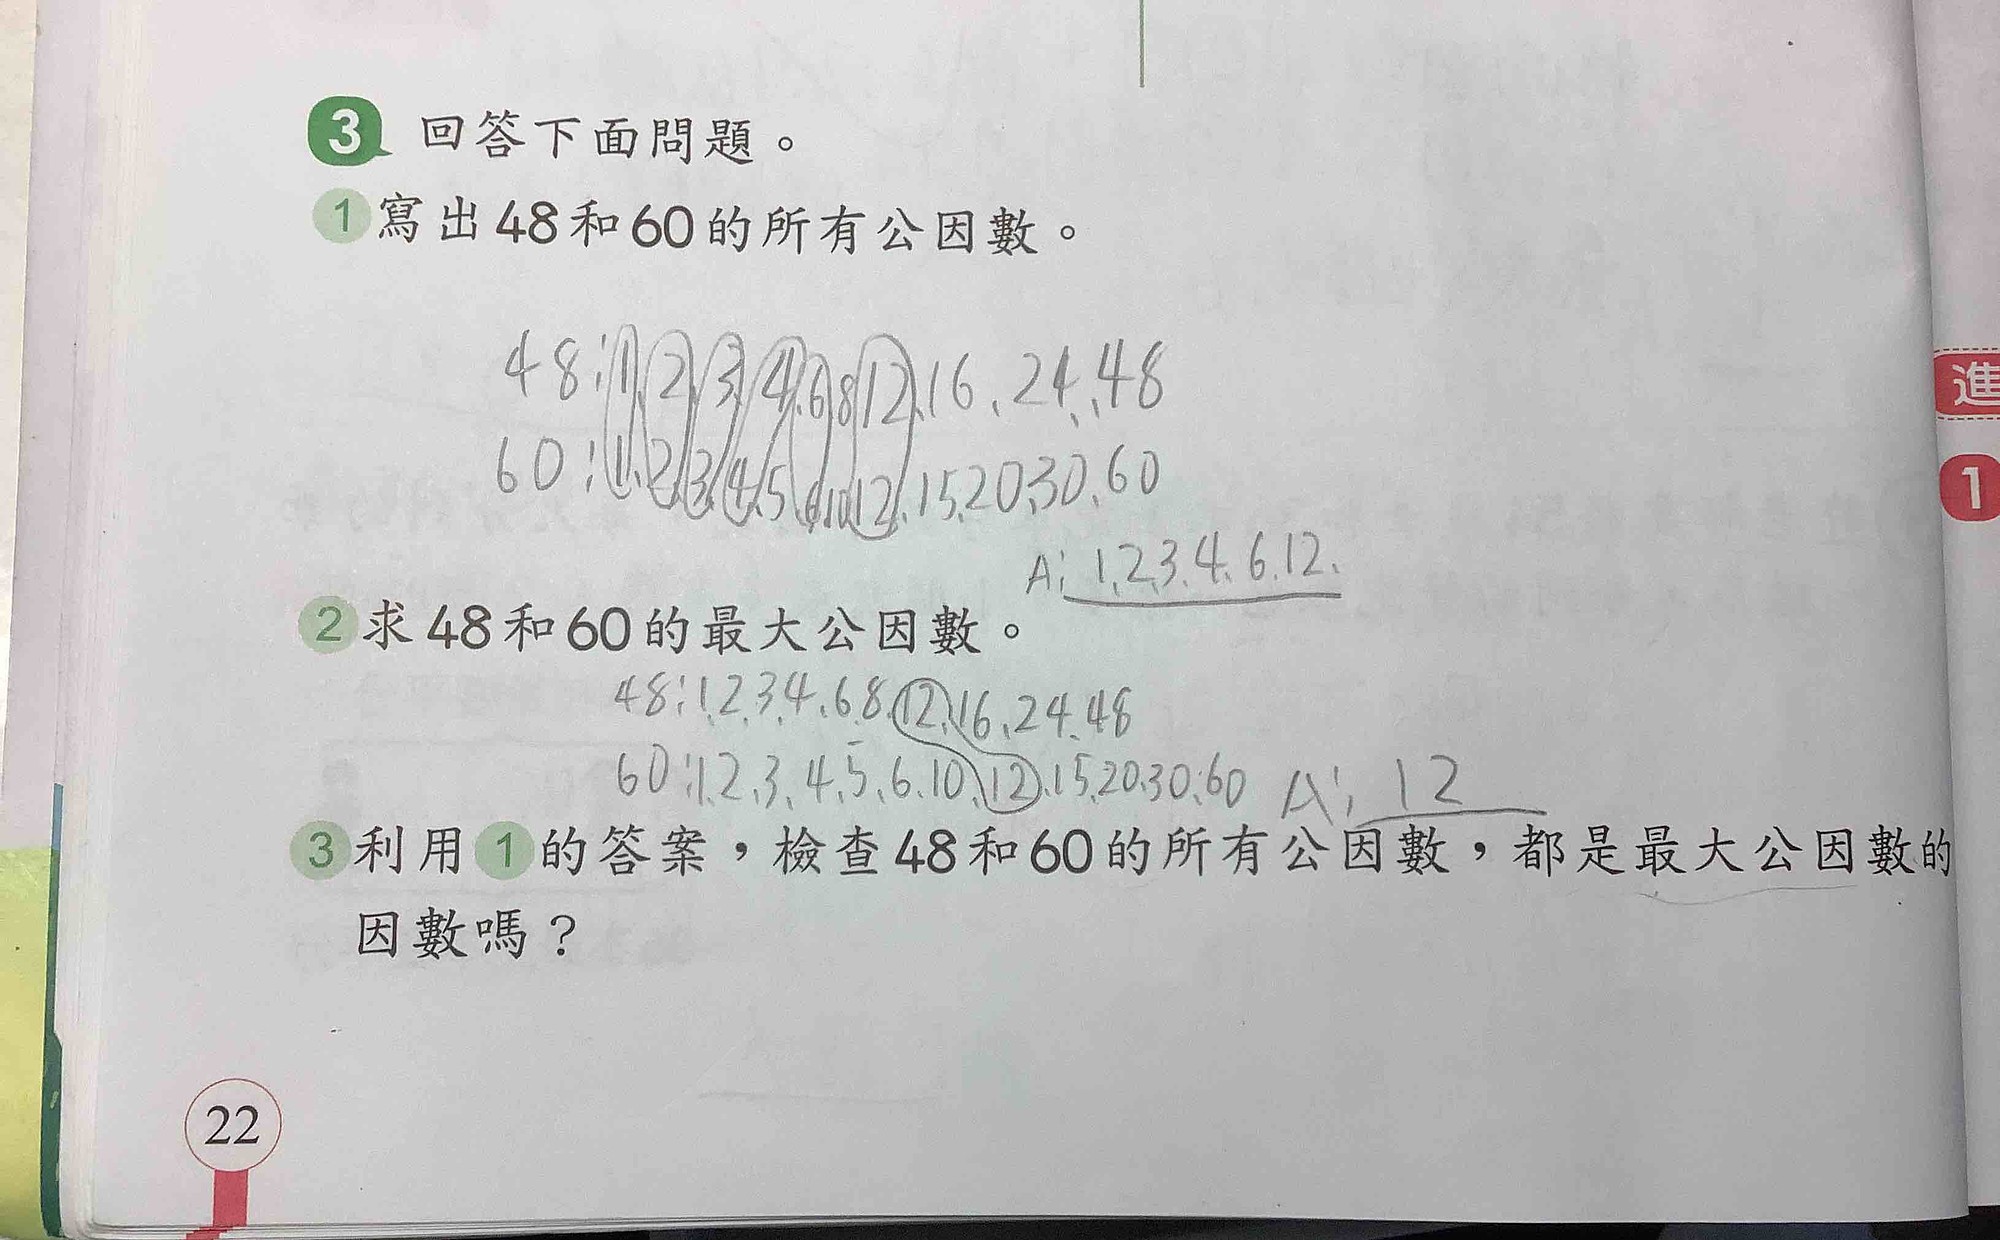 3 回答下面問題。
1 寫出48和60的所有公因數。
48:1、2、3、4、6、8、12、16、24、48
60:1、2、3、4、5、6、10、12、15、20、30、60
A:1、2、3、4、6、12、
2 求48和60的最大公因數。
48:1、2、3、4、6、8、12、16、24、48
60:1、2、3、4、5、6、10、12、15、20、30、60
A:12
3 利用1的答案,檢查48和60的所有公因數,都是最大公因數的
因數嗎?
22
進
1